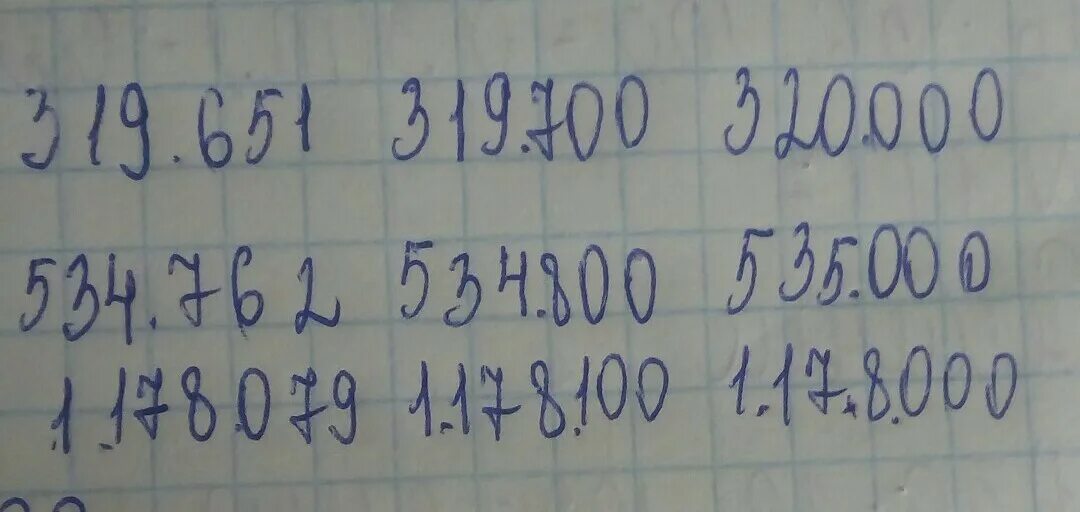 319.651 319.700 320.000
534.762 534.800 535.000
1.178.079 1.178.100 1.178.000